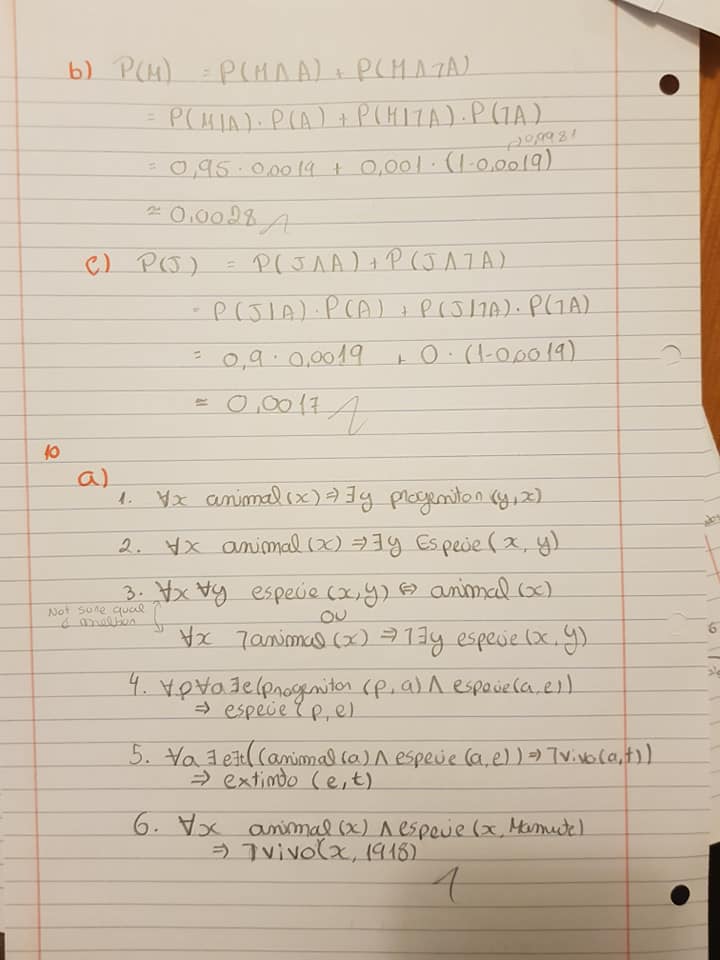 b) P(M) = P(M∧A) + P(M∧¬A)
= P(M|A)·P(A) + P(M|¬A)·P(¬A)
0,9981
= 0,95·0,0019 + 0,001·(1-0,0019)
≈ 0,0028
c) P(J) = P(J∧A) + P(J∧¬A)
= P(J|A)·P(A) + P(J|¬A)·P(¬A)
= 0,9·0,0019 + 0·(1-0,0019)
≈ 0,0017
10
a)
1. ∀x animal(x) ⇒ ∃y progenitor(y,x)
2. ∀x animal(x) ⇒ ∃y Espécie(x,y)
3. ∀x ∀y espécie(x,y) ⇔ animal(x)
Not sure qual
é melhor
OU
∀x ¬animal(x) ⇒ ¬∃y espécie(x,y)
4. ∀p∀a∃e(progenitor(p,a) ∧ espécie(a,e))
⇒ espécie(p,e)
5. ∀a∃e∃t((animal(a) ∧ espécie(a,e)) ⇒ ¬vivo(a,t))
⇒ extinto(e,t)
6. ∀x animal(x) ∧ espécie(x, Mamute)
⇒ ¬vivo(x, 1918)